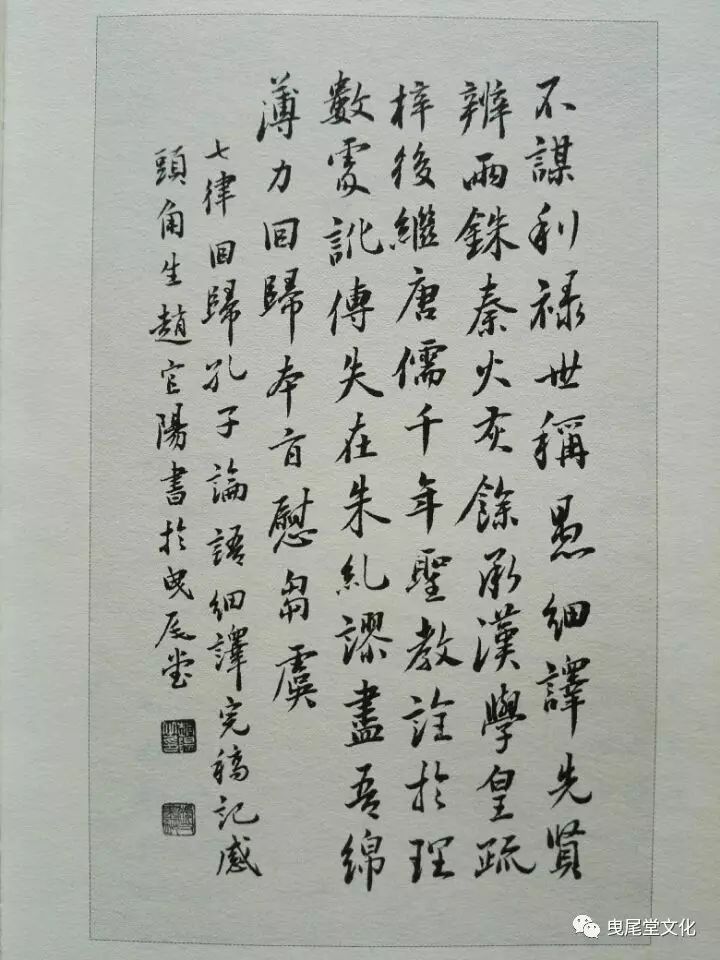 不謀利禄世稱愚細譯先賢
辨兩銖秦火灰餘承漢學皇疏
梓後繼唐儒千年聖教詮於理
數處訛傳失在朱糺謬盡吾綿
薄力回歸本旨慰芻虞
七律回歸孔子論語細譯完稿記感
頭角生趙官陽書於曳尾堂
曳尾堂文化